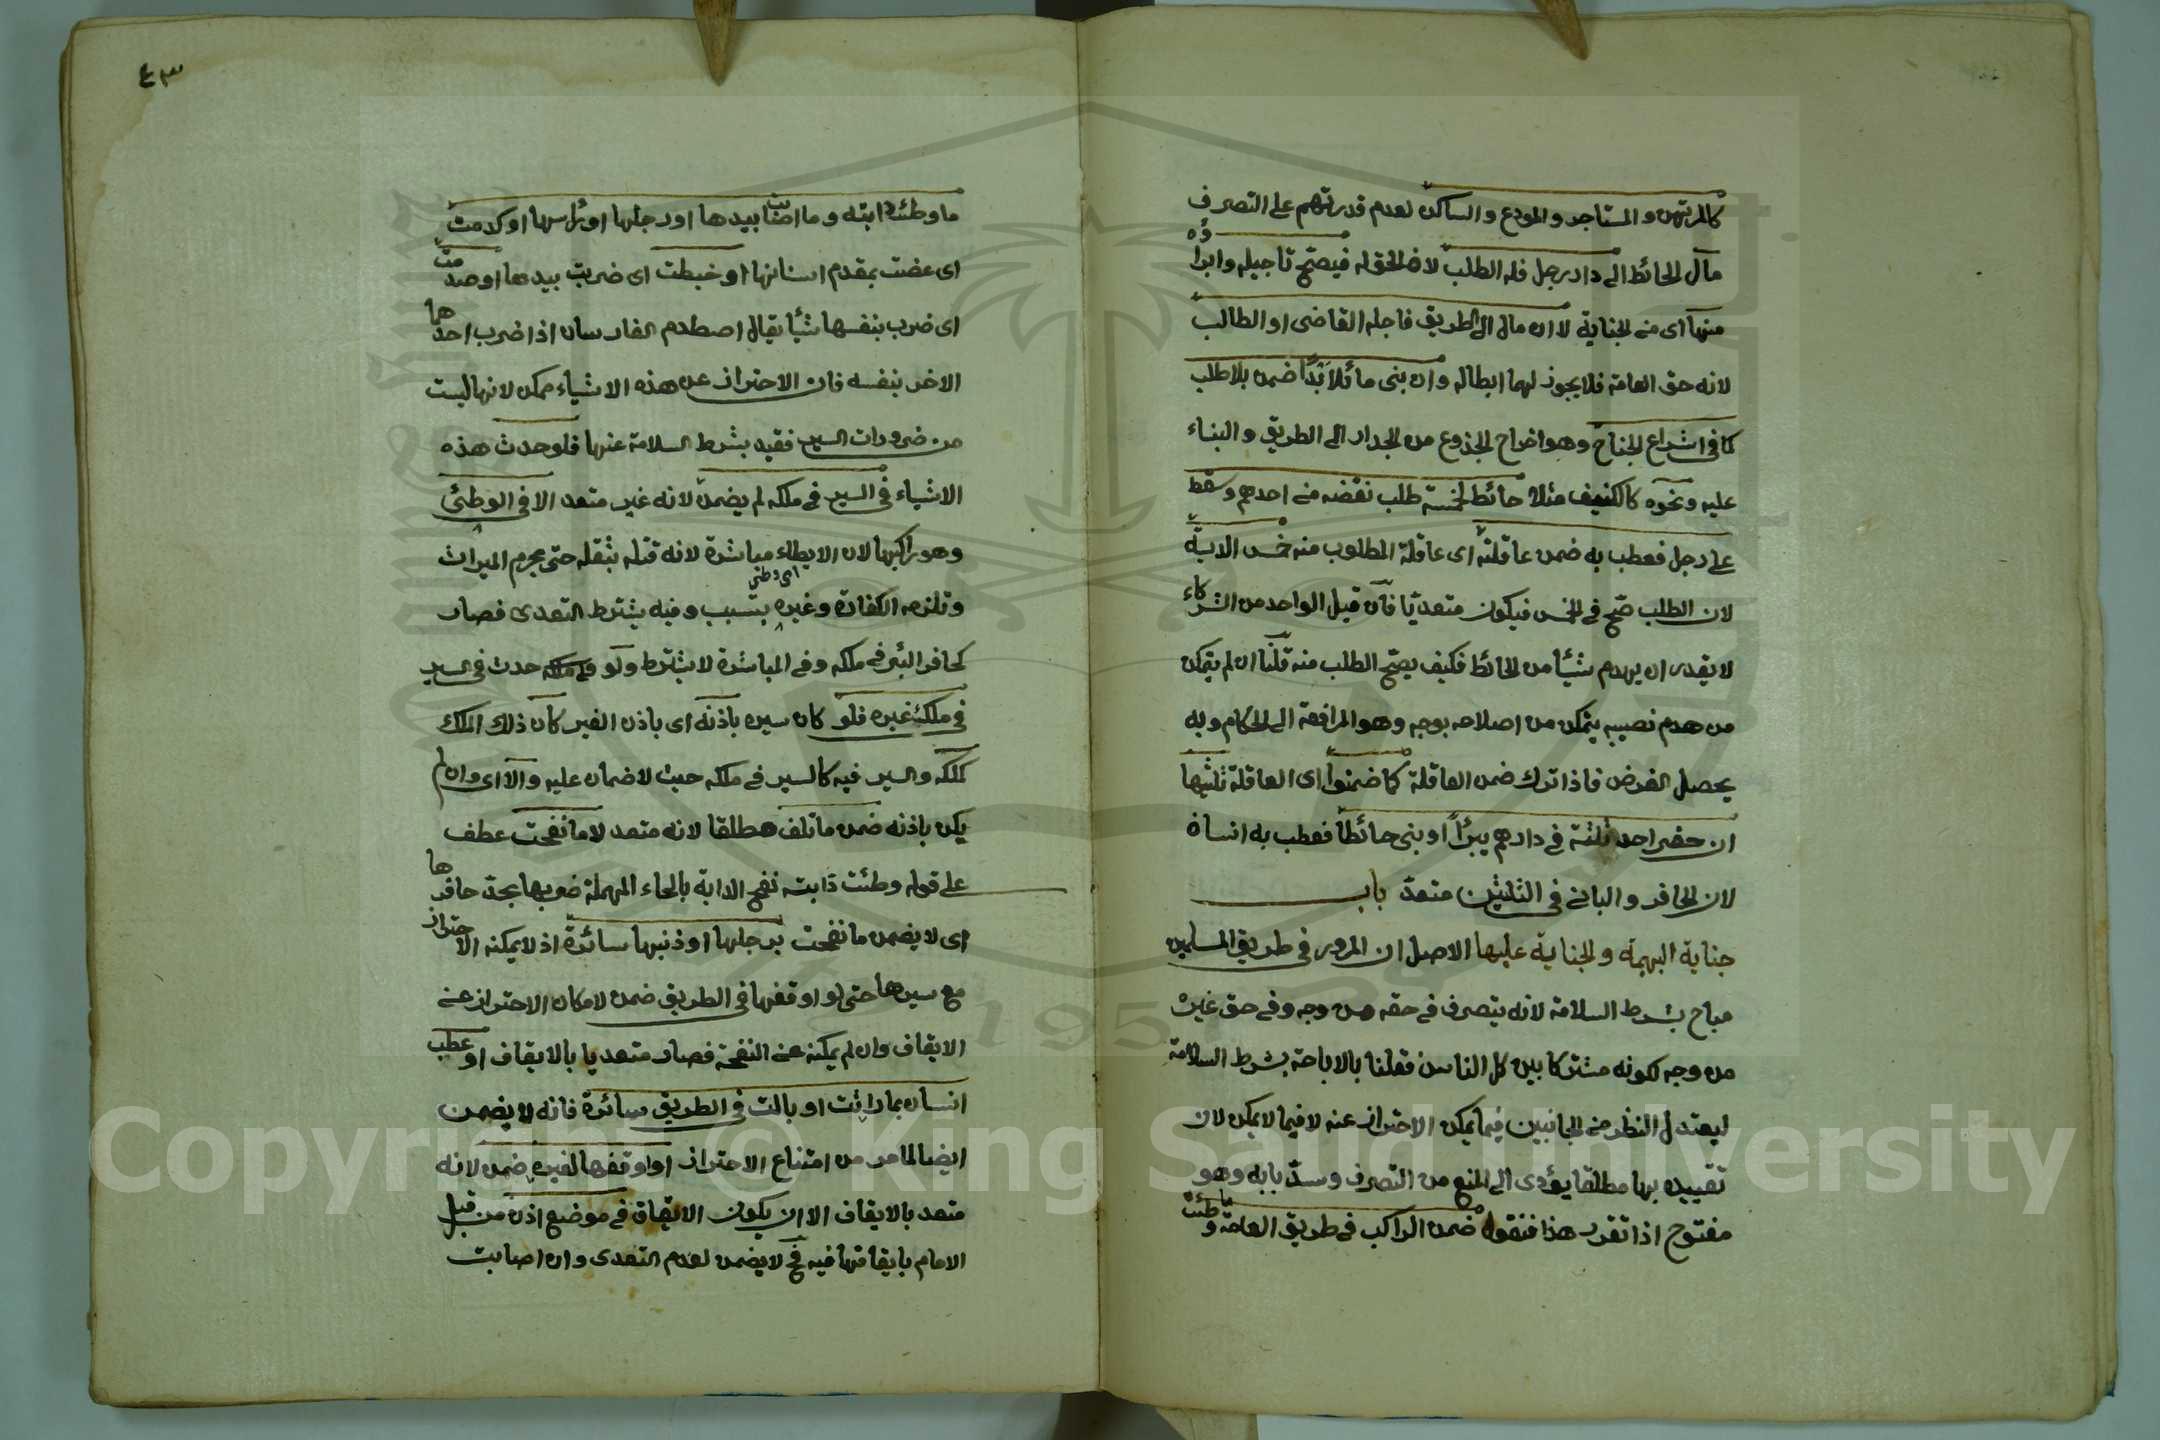 كالمرتهن والمستاجر والمودع والساكن لعدم قدرتهم على التصرف
مال الحائط الى دار رجل فله الطلب لان الحق له فيصح تاجيله وابراؤه
منها اى من الجناية لا ان مال الى الطريق فاجله القاضى او الطالب
لانه حق العامة فلا يجوز لهما ابطاله وان بنى مائلا ابتداً ضمن بلا طلب
كما فى اشراع الجناح وهو اخراج الجذوع من الجدار الى الطريق والبناء
عليه ونحوه كالكنيف مثلا حائط لخمسة طلب نقضه من احدهم وسقط
على رجل فعطب به ضمن عاقلته اى عاقلة المطلوب منه خمس الدية
لان الطلب صح فى الخمس فيكون متعديا فان قيل الواحد من الشركاء
لا يقدر ان يهدم شيئا من الحائط فكيف يصح الطلب منه قلنا ان لم يتمكن
من هدم نصيبه يتمكن من اصلاحه بوجه وهو المرافعة الى الحكام وبه
يحصل الغرض فاذا ترك ضمن العاقلة كما ضمنوا اى العاقلة ثلثيها
ان حفر احد ثلثة فى دارهم بيراً او بنى حائطاً فعطب به انسان
لان الحافر والبانى فى الثلثين متعدّ باب
جناية البهيمة والجناية عليها الاصل ان المرور فى طريق المسلمين
مباح بشرط السلامة لانه يتصرف فى حقه من وجه وفى حق غيره
من وجه لكونه مشتركا بين كل الناس فقلنا بالاباحة بشرط السلامة
ليعتدل النظر من الجانبين فيما يمكن الاحتراز عنه لا فيما لا يمكن لان
تقييده بها مطلقا يؤدى الى المنع من التصرف وسدّ بابه وهو
مفتوح اذا تقرر هذا فنقول ضمن الراكب فى طريق العامة ما وطئت
٤٣
ما وطئت دابته وما اصابت بيدها او رجلها او راسها او كدمت
اى عضت بمقدم اسنانها او خبطت اى ضربت بيدها او صدمت
اى ضرب بنفسها شيأ يقال اصطدم الفارسان اذا ضرب احدهما
الاخر بنفسه فان الاحتراز عن هذه الاشياء ممكن لانها ليست
من ضرورات السير فقيد بشرط السلامة عنها فلو حدث هذه
الاشياء فى السير فى ملكه لم يضمن لانه غير متعد الا فى الوطئ
وهو راكبها لان الايطاء مباشرة لانه قتله بثقله حتى يحرم الميراث
وتلزمه الكفارة وغيره اى وطئ بتسبب وفيه يشترط التعدى فصار
كحافر البئر فى ملكه وفى المباشرة لا يشترط ولو حدث فى السير
فى ملك غيره فلو كان سيره باذنه اى باذن الغير كان ذلك الملك
كملكه والسير فيه كالسير فى ملكه حيث لا ضمان عليه والا اى وان لم
يكن باذنه ضمن ما تلف مطلقا لانه متعد لا ما نفحت عطف
على قوله وطئت دابته نفح الدابة بالحاء المهملة ضربها بحد حافرها
اى لا يضمن ما نفحت برجلها او ذنبها سائرة اذ لا يمكنه الاحتراز
مع سيرها حتى لو اوقفها فى الطريق ضمن لامكان الاحتراز عن
الايقاف وان لم يمكنه عن النفحة فصار متعديا بالايقاف او عطب
انسان بما راثت او بالت فى الطريق سائرة فانه لا يضمن
ايضا لما مر من امتناع الاحتراز او اوقفها لغيره ضمن لانه
متعد بالايقاف الا ان يكون الايقاف فى موضع اذن من قبل
الامام بايقافها فيه فح لا يضمن لعدم التعدى وان اصابت
Copyright © King Saud University